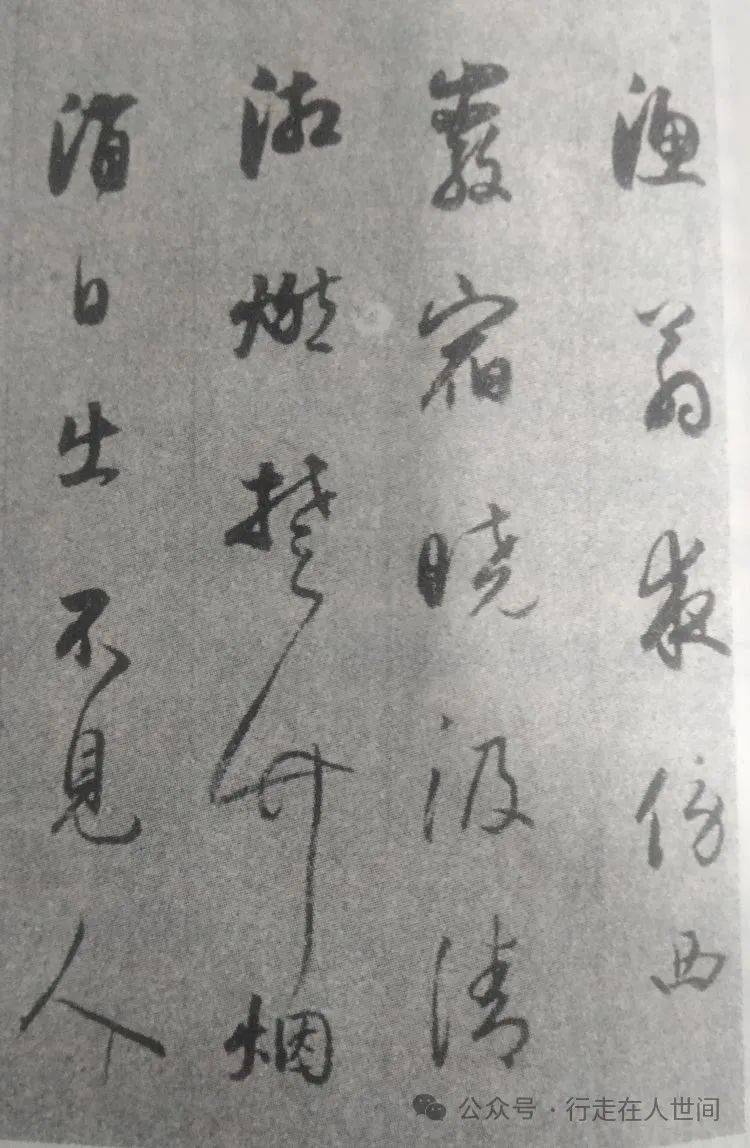 渔翁夜傍西
巖宿晓汲清
湘燃楚竹烟
消日出不見人
公众号·行走在人世间